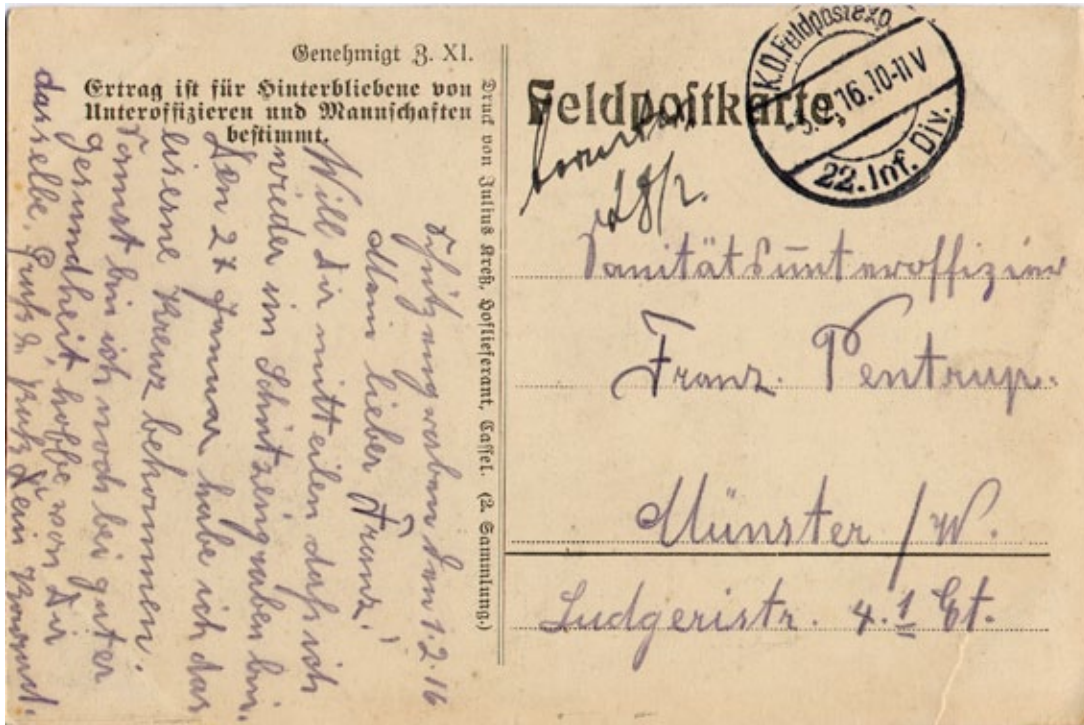 Genehmigt Z. XI.
Ertrag ist für Hinterbliebene von
Unteroffizieren und Mannschaften
bestimmt.
Druck von Julius Kreß, Hoflieferant, Cassel. (2. Sammlung.)
Feldpostkarte
K.D. Feldpostexp.
-3.2.16. 10-11 V
22. Inf. Div.
28/2.
Sanitätsunteroffizier
Franz. Pentrup.
Münster / W.
Ludgeristr. 4. 1 Et.
Schützengraben den 1.2.16
Mein lieber Franz!
Will Dir mitteilen daß ich
wieder im Schützengraben bin.
Den 27 Januar habe ich das
eiserne Kreuz bekommen.
Sonst bin ich noch bei guter
Gesundheit, hoffe von Dir
dasselbe. Gruß u. Kuß Dein